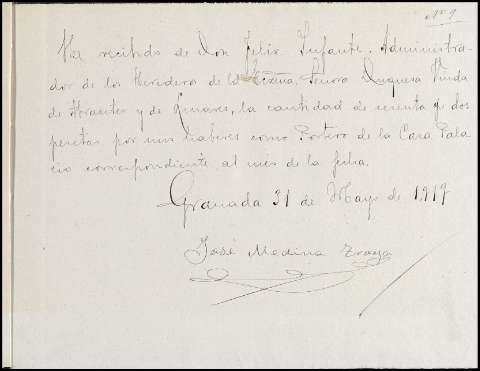 Nº 9
He recibido de Don Felix Infante. Administra-
dor de los Herederos de la Exma, Senora Duquesa Viuda
de Abrantes y de Linares, la cantidad de y dos
pesetas por mis haberes como Portero de la Casa Pala
cio correspondiente al mes de la fecha.
Granada 31 de Mayo de 1917
José Medina